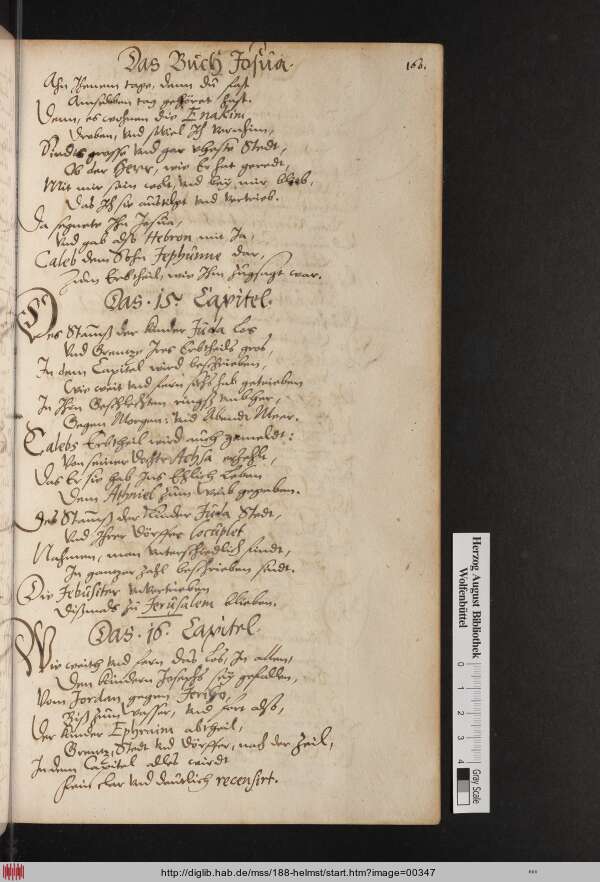 Das Buch Josua.
160.
Ahn Jenem tage, dann du hast
Am selben tag gehöret fast.
Denn, es wohnen die Enakim
Droben, vnd viel Ich vernihm,
Sindt grosse vnd gar veste Stedt,
Ob der Herr, wie Er hat geredt,
Mit mir sein wolt, vnd bey mir blieb,
Das Ich sie austilgt vnd vertrieb.
Da segnete Ihn Josua,
Vnd gab also Hebron mit Ja,
Caleb dem Sohn Jephunne dar,
Zum Erbtheil, wie Ihm zugesagt war.
Das. 15. Capitel.
Des Stamß der Kinder Juda Los
Vnd Grentze Ires Erbtheils gros,
In dem Capitel wird beschrieben,
Wie weit vnd fern sichs hab getrieben
In Ihren Geschlechten rings vmbher,
Gegen Morgen: vnd Abends Meer.
Calebs Erbtheil wird auch gemeldt:
Von seiner Dochter Achsa erzehlt,
Das Er sie hab Ins Ehlich Leben
Dem Athniel zum Weib gegeben.
Des Stamß der Kinder Juda Stedt,
Vnd Ihrer Dörffer locuplet
Nahmen, man vnterschiedlich findt,
In gantzer Zahl beschrieben sindt.
Die Jebusiter vnvertrieben
Dißmals zu Jerusalem blieben.
Das. 16. Capitel.
Wie weith vnd fern das Los, In allen,
Den Kindern Josephs sey gefallen,
Vom Jordan gegen Jericho,
Biß zum Wasser, vnd fort also,
Der Kinder Ephraim abtheil,
Grentz, Stedt vnd Dörffer, nach der Zeil,
In dem Capitel alles wirdt
Fein clar vnd deutlich recensirt.
Herzog August Bibliothek
Wolfenbüttel
0 1 2 3 4
Gray Scale
http://diglib.hab.de/mss/188-helmst/start.htm?image=00347